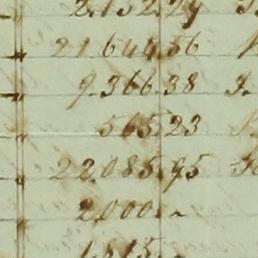 2.132.29
21.644.56
9.366.38
565.23
22.085.95
2.000.~
1.815.~